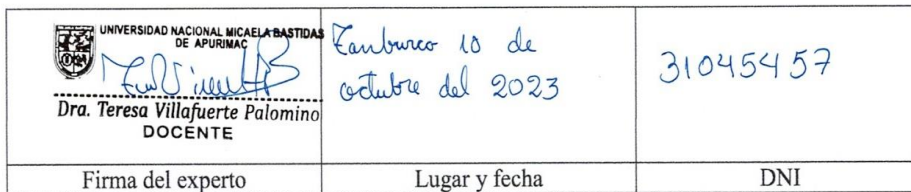 UNIVERSIDAD NACIONAL MICAELA BASTIDAS
DE APURIMAC
Dra. Teresa Villafuerte Palomino
DOCENTE
Tamburco 10 de
octubre del 2023
31045457
Firma del experto
Lugar y fecha
DNI